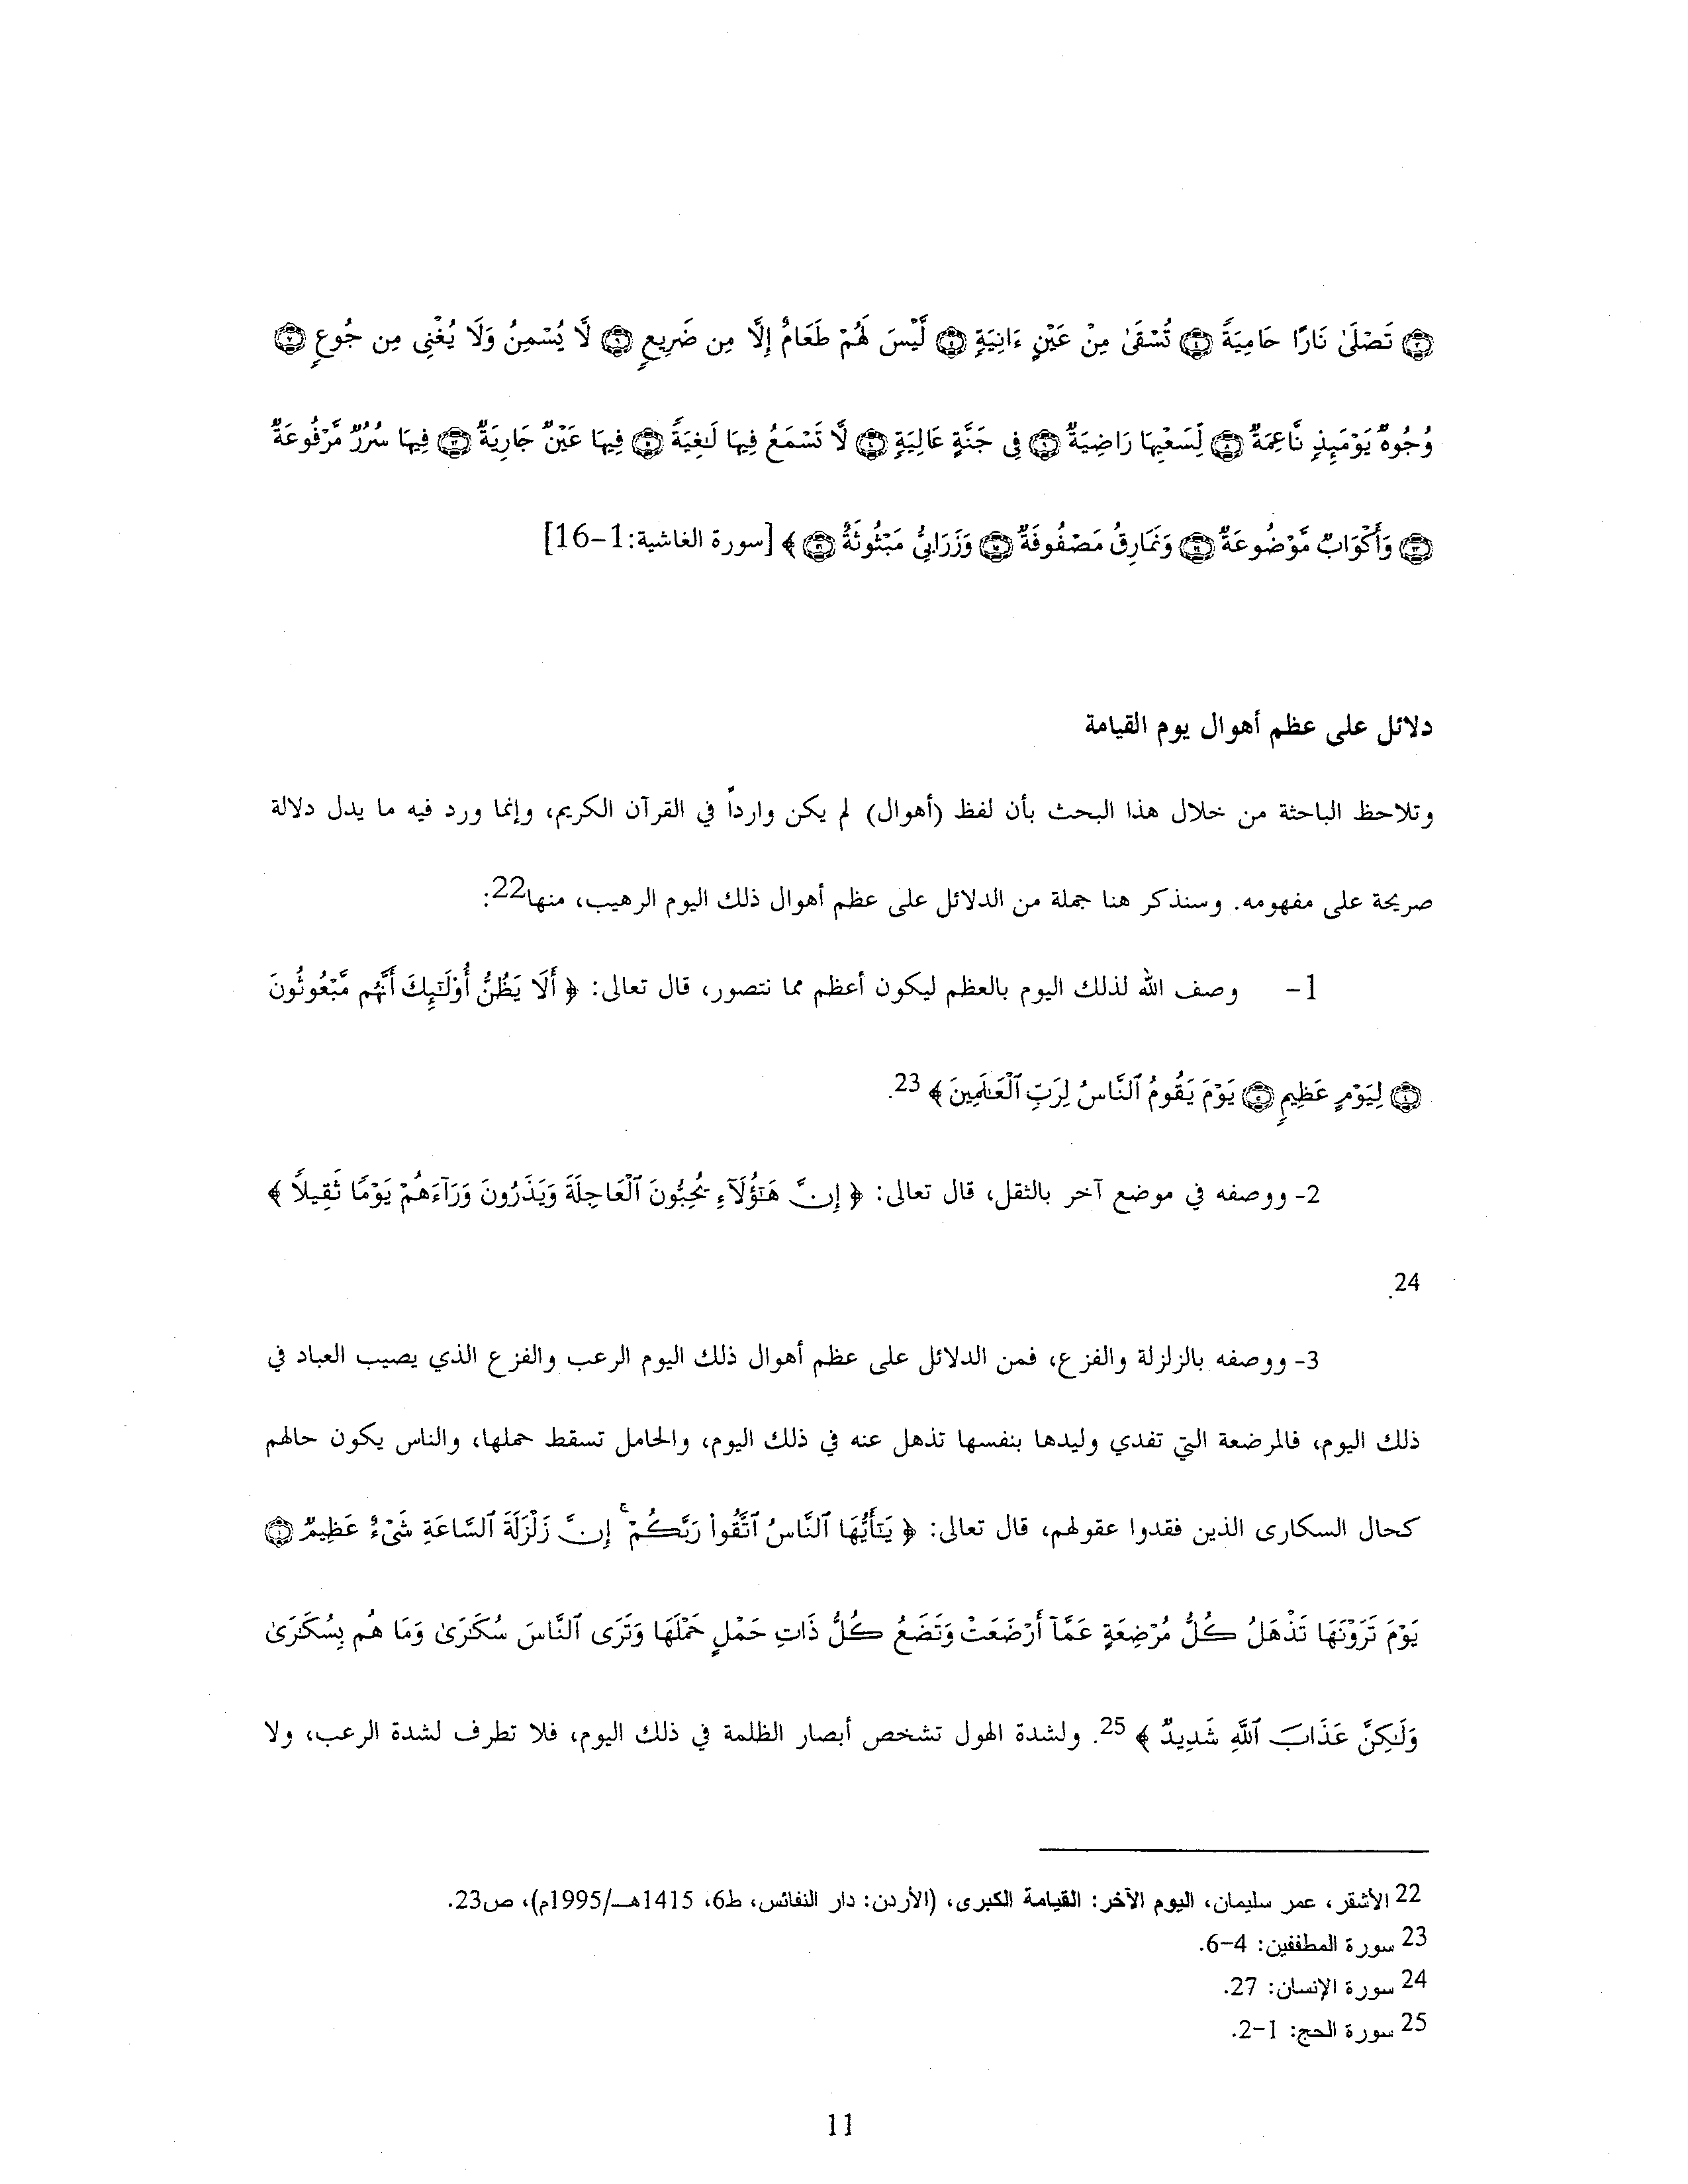 ﴿٣﴾ تَصْلَىٰ نَارًا حَامِيَةً ﴿٤﴾ تُسْقَىٰ مِنْ عَيْنٍ ءَانِيَةٍ ﴿٥﴾ لَّيْسَ لَهُمْ طَعَامٌ إِلَّا مِن ضَرِيعٍ ﴿٦﴾ لَّا يُسْمِنُ وَلَا يُغْنِى مِن جُوعٍ ﴿٧﴾
وُجُوهٌ يَوْمَئِذٍ نَّاعِمَةٌ ﴿٨﴾ لِّسَعْيِهَا رَاضِيَةٌ ﴿٩﴾ فِى جَنَّةٍ عَالِيَةٍ ﴿١٠﴾ لَّا تَسْمَعُ فِيهَا لَـٰغِيَةً ﴿١١﴾ فِيهَا عَيْنٌ جَارِيَةٌ ﴿١٢﴾ فِيهَا سُرُرٌ مَّرْفُوعَةٌ
﴿١٣﴾ وَأَكْوَابٌ مَّوْضُوعَةٌ ﴿١٤﴾ وَنَمَارِقُ مَصْفُوفَةٌ ﴿١٥﴾ وَزَرَابِىُّ مَبْثُوثَةٌ ﴿١٦﴾ ﴾ [سورة الغاشية:1-16]
دلائل على عظم أهوال يوم القيامة
وتلاحظ الباحثة من خلال هذا البحث بأن لفظ (أهوال) لم يكن وارداً في القرآن الكريم، وإنما ورد فيه ما يدل دلالة
صريحة على مفهومه. وسنذكر هنا جملة من الدلائل على عظم أهوال ذلك اليوم الرهيب، منها22:
1- وصف الله لذلك اليوم بالعظم ليكون أعظم مما نتصور، قال تعالى: ﴿ أَلَا يَظُنُّ أُوْلَـٰٓئِكَ أَنَّهُم مَّبْعُوثُونَ
﴿٤﴾ لِيَوْمٍ عَظِيمٍ ﴿٥﴾ يَوْمَ يَقُومُ ٱلنَّاسُ لِرَبِّ ٱلْعَـٰلَمِينَ ﴾ 23.
2- ووصفه في موضع آخر بالثقل، قال تعالى: ﴿ إِنَّ هَـٰٓؤُلَآءِ يُحِبُّونَ ٱلْعَاجِلَةَ وَيَذَرُونَ وَرَآءَهُمْ يَوْمًا ثَقِيلًا ﴾
24.
3- ووصفه بالزلزلة والفزع، فمن الدلائل على عظم أهوال ذلك اليوم الرعب والفزع الذي يصيب العباد في
ذلك اليوم، فالمرضعة التي تفدي وليدها بنفسها تذهل عنه في ذلك اليوم، والحامل تسقط حملها، والناس يكون حالهم
كحال السكارى الذين فقدوا عقولهم، قال تعالى: ﴿ يَـٰٓأَيُّهَا ٱلنَّاسُ ٱتَّقُوا۟ رَبَّكُمْ ۚ إِنَّ زَلْزَلَةَ ٱلسَّاعَةِ شَىْءٌ عَظِيمٌ ﴿١﴾
يَوْمَ تَرَوْنَهَا تَذْهَلُ كُلُّ مُرْضِعَةٍ عَمَّآ أَرْضَعَتْ وَتَضَعُ كُلُّ ذَاتِ حَمْلٍ حَمْلَهَا وَتَرَى ٱلنَّاسَ سُكَـٰرَىٰ وَمَا هُم بِسُكَـٰرَىٰ
وَلَـٰكِنَّ عَذَابَ ٱللَّهِ شَدِيدٌ ﴾ 25. ولشدة الهول تشخص أبصار الظلمة في ذلك اليوم، فلا تطرف لشدة الرعب، ولا
22 الأشقر، عمر سليمان، اليوم الآخر: القيامة الكبرى، (الأردن: دار النفائس، ط6، 1415هـ/1995م)، ص23.
23 سورة المطففين: 4-6.
24 سورة الإنسان: 27.
25 سورة الحج: 1-2.
11